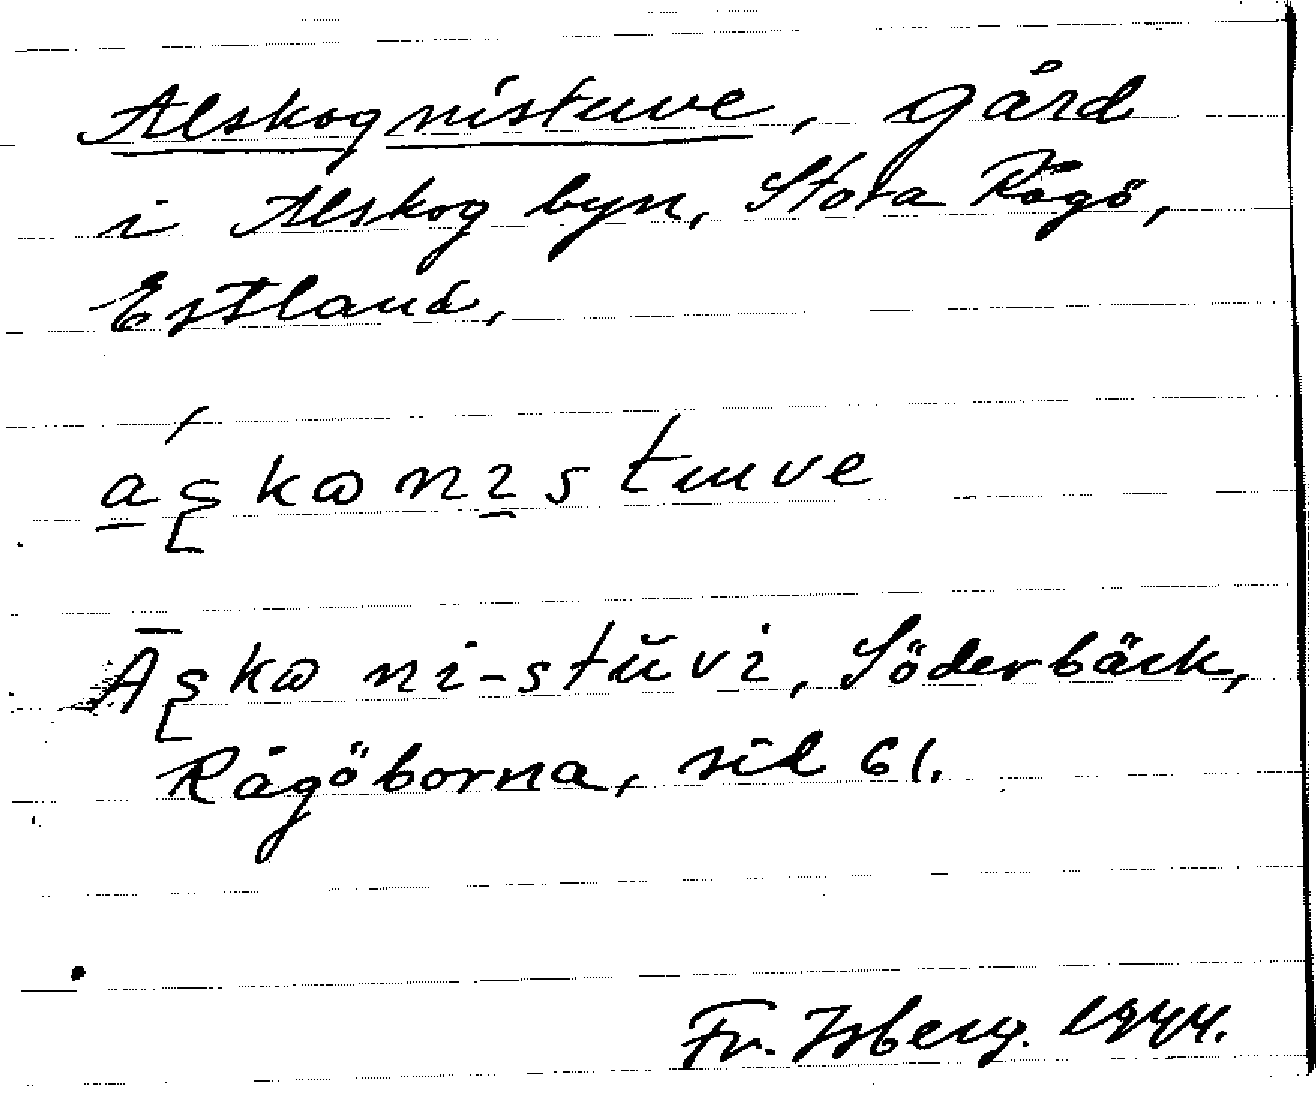 Alskognistuve, gård
i Alskog byn, Stora Rågö,
Estland.
a̲ʂkωnı̲stuve
Āʂkωni-stŭvi, Söderbäck,
Rågöborna, sid 61.
Fr. Isberg. 1944.